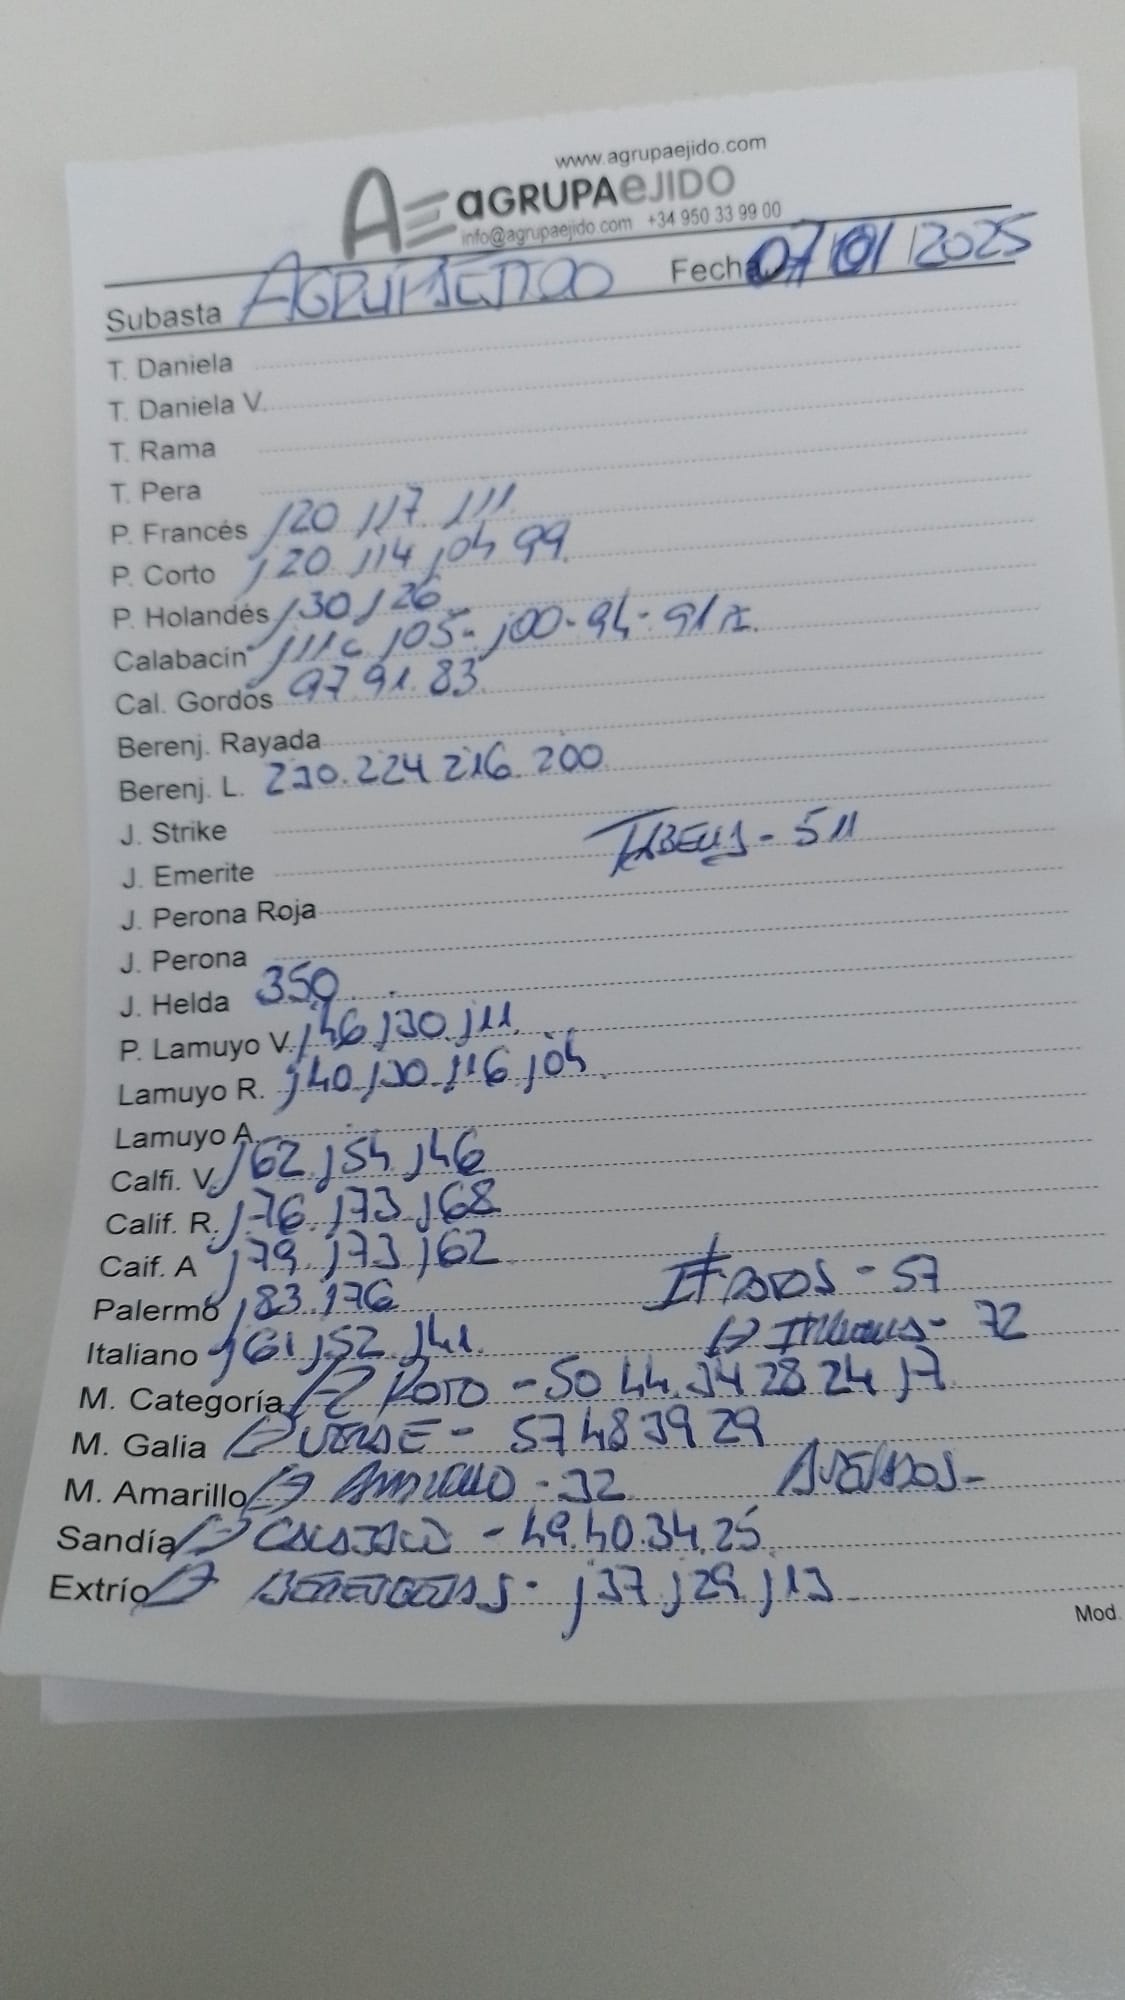 www.agrupaejido.com
AE aGRUPAeJIDO
info@agrupaejido.com +34 950 33 99 00
Subasta AGRUPAEJIDO Fecha 07/01/2025
T. Daniela
T. Daniela V.
T. Rama
T. Pera
P. Francés 120 117. 111
P. Corto 120. 114 104 99.
P. Holandés 130 126
Calabacín 111c 105- 100- 94- 91
Cal. Gordos 97 91. 83.
Berenj. Rayada
Berenj. L. 230. 224 216. 200
J. Strike
TABELLJ - 511
J. Emerite
J. Perona Roja
J. Perona
J. Helda 350
P. Lamuyo V. 146 130. 111.
Lamuyo R. 140 130. 116 104
Lamuyo A.
Calfi. V. 162. 154. 146
Calif. R. 176. 173 168
Caif. A 179. 173 162
Palermo 183. 176 - 57
Italiano 161 152. 141. Italianos - 72
M. Categoría ROJO - 50 44. 34 28 24 17
M. Galia VERDE - 57 48 39 29
M. Amarillo AMARILLO - 32
Sandía CALABACIN - 49. 40. 34. 25
Extrío BERENGENAS - 137 129. 113
Mod.